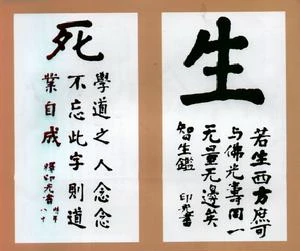 生
若生西方庶可
与佛光壽同一
无量无邊矣
智生鑑 印光書
死
學道之人念念
不忘此字則道
業自成 釋印光書
八十